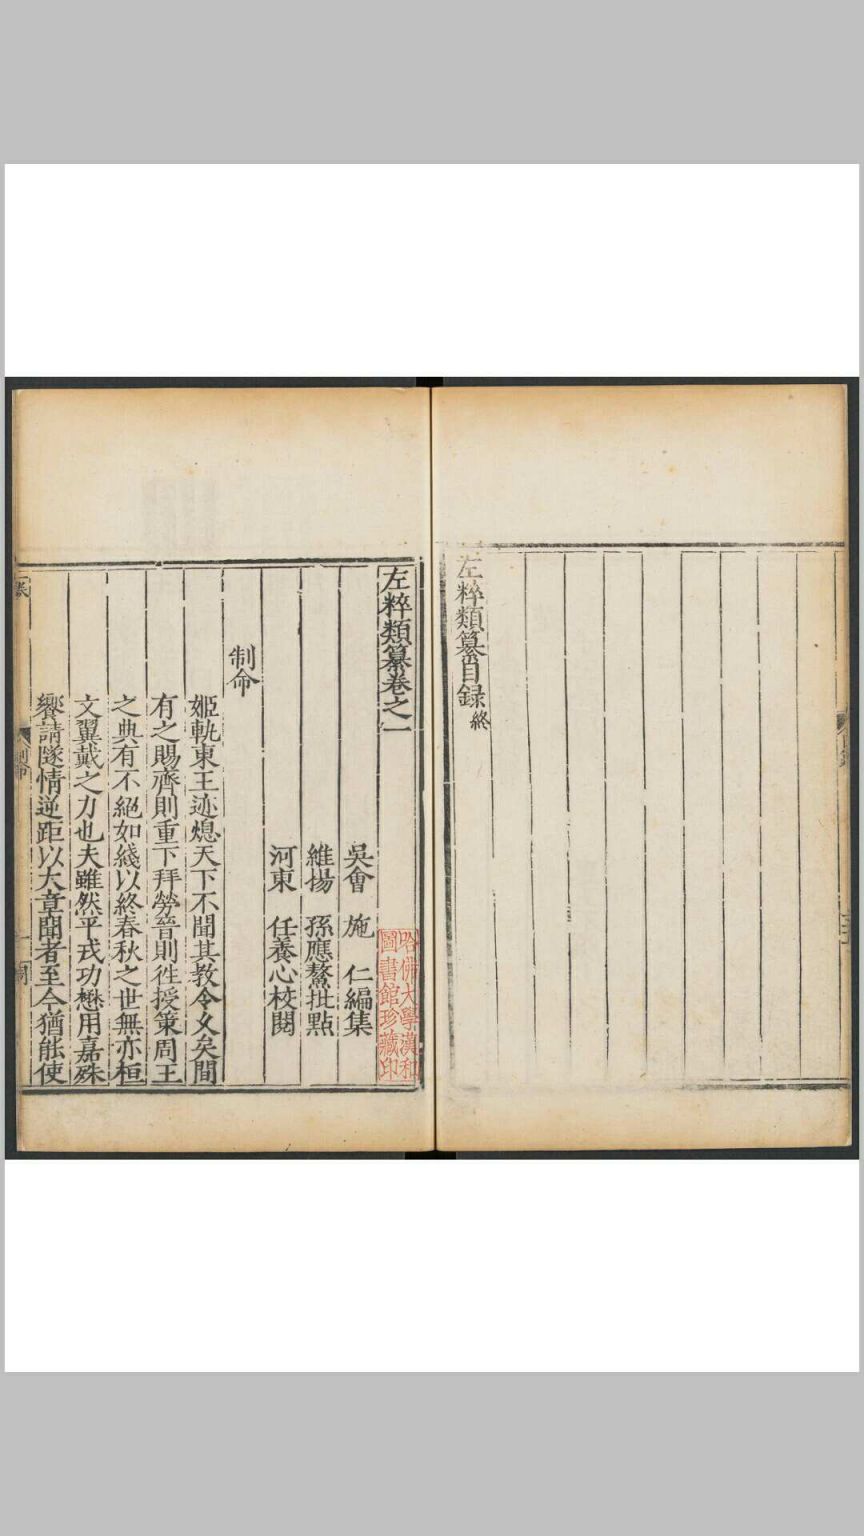 左粹類纂目録終
左粹類纂卷之一
吳會 施 仁編集
維揚 孫應鰲批點
河東 任養心校閱
哈佛大學漢和
圖書館珍藏印
制命
姬軌東王迹熄天下不聞其教令乆矣間
有之賜齊則重下拜勞晉則徃授策周王
之典有不絕如綫以終春秋之世無亦桓
文翼戴之力也夫雖然平戎功懋用嘉殊
饗請隧情逆距以大章聞者至今猶能使
制命